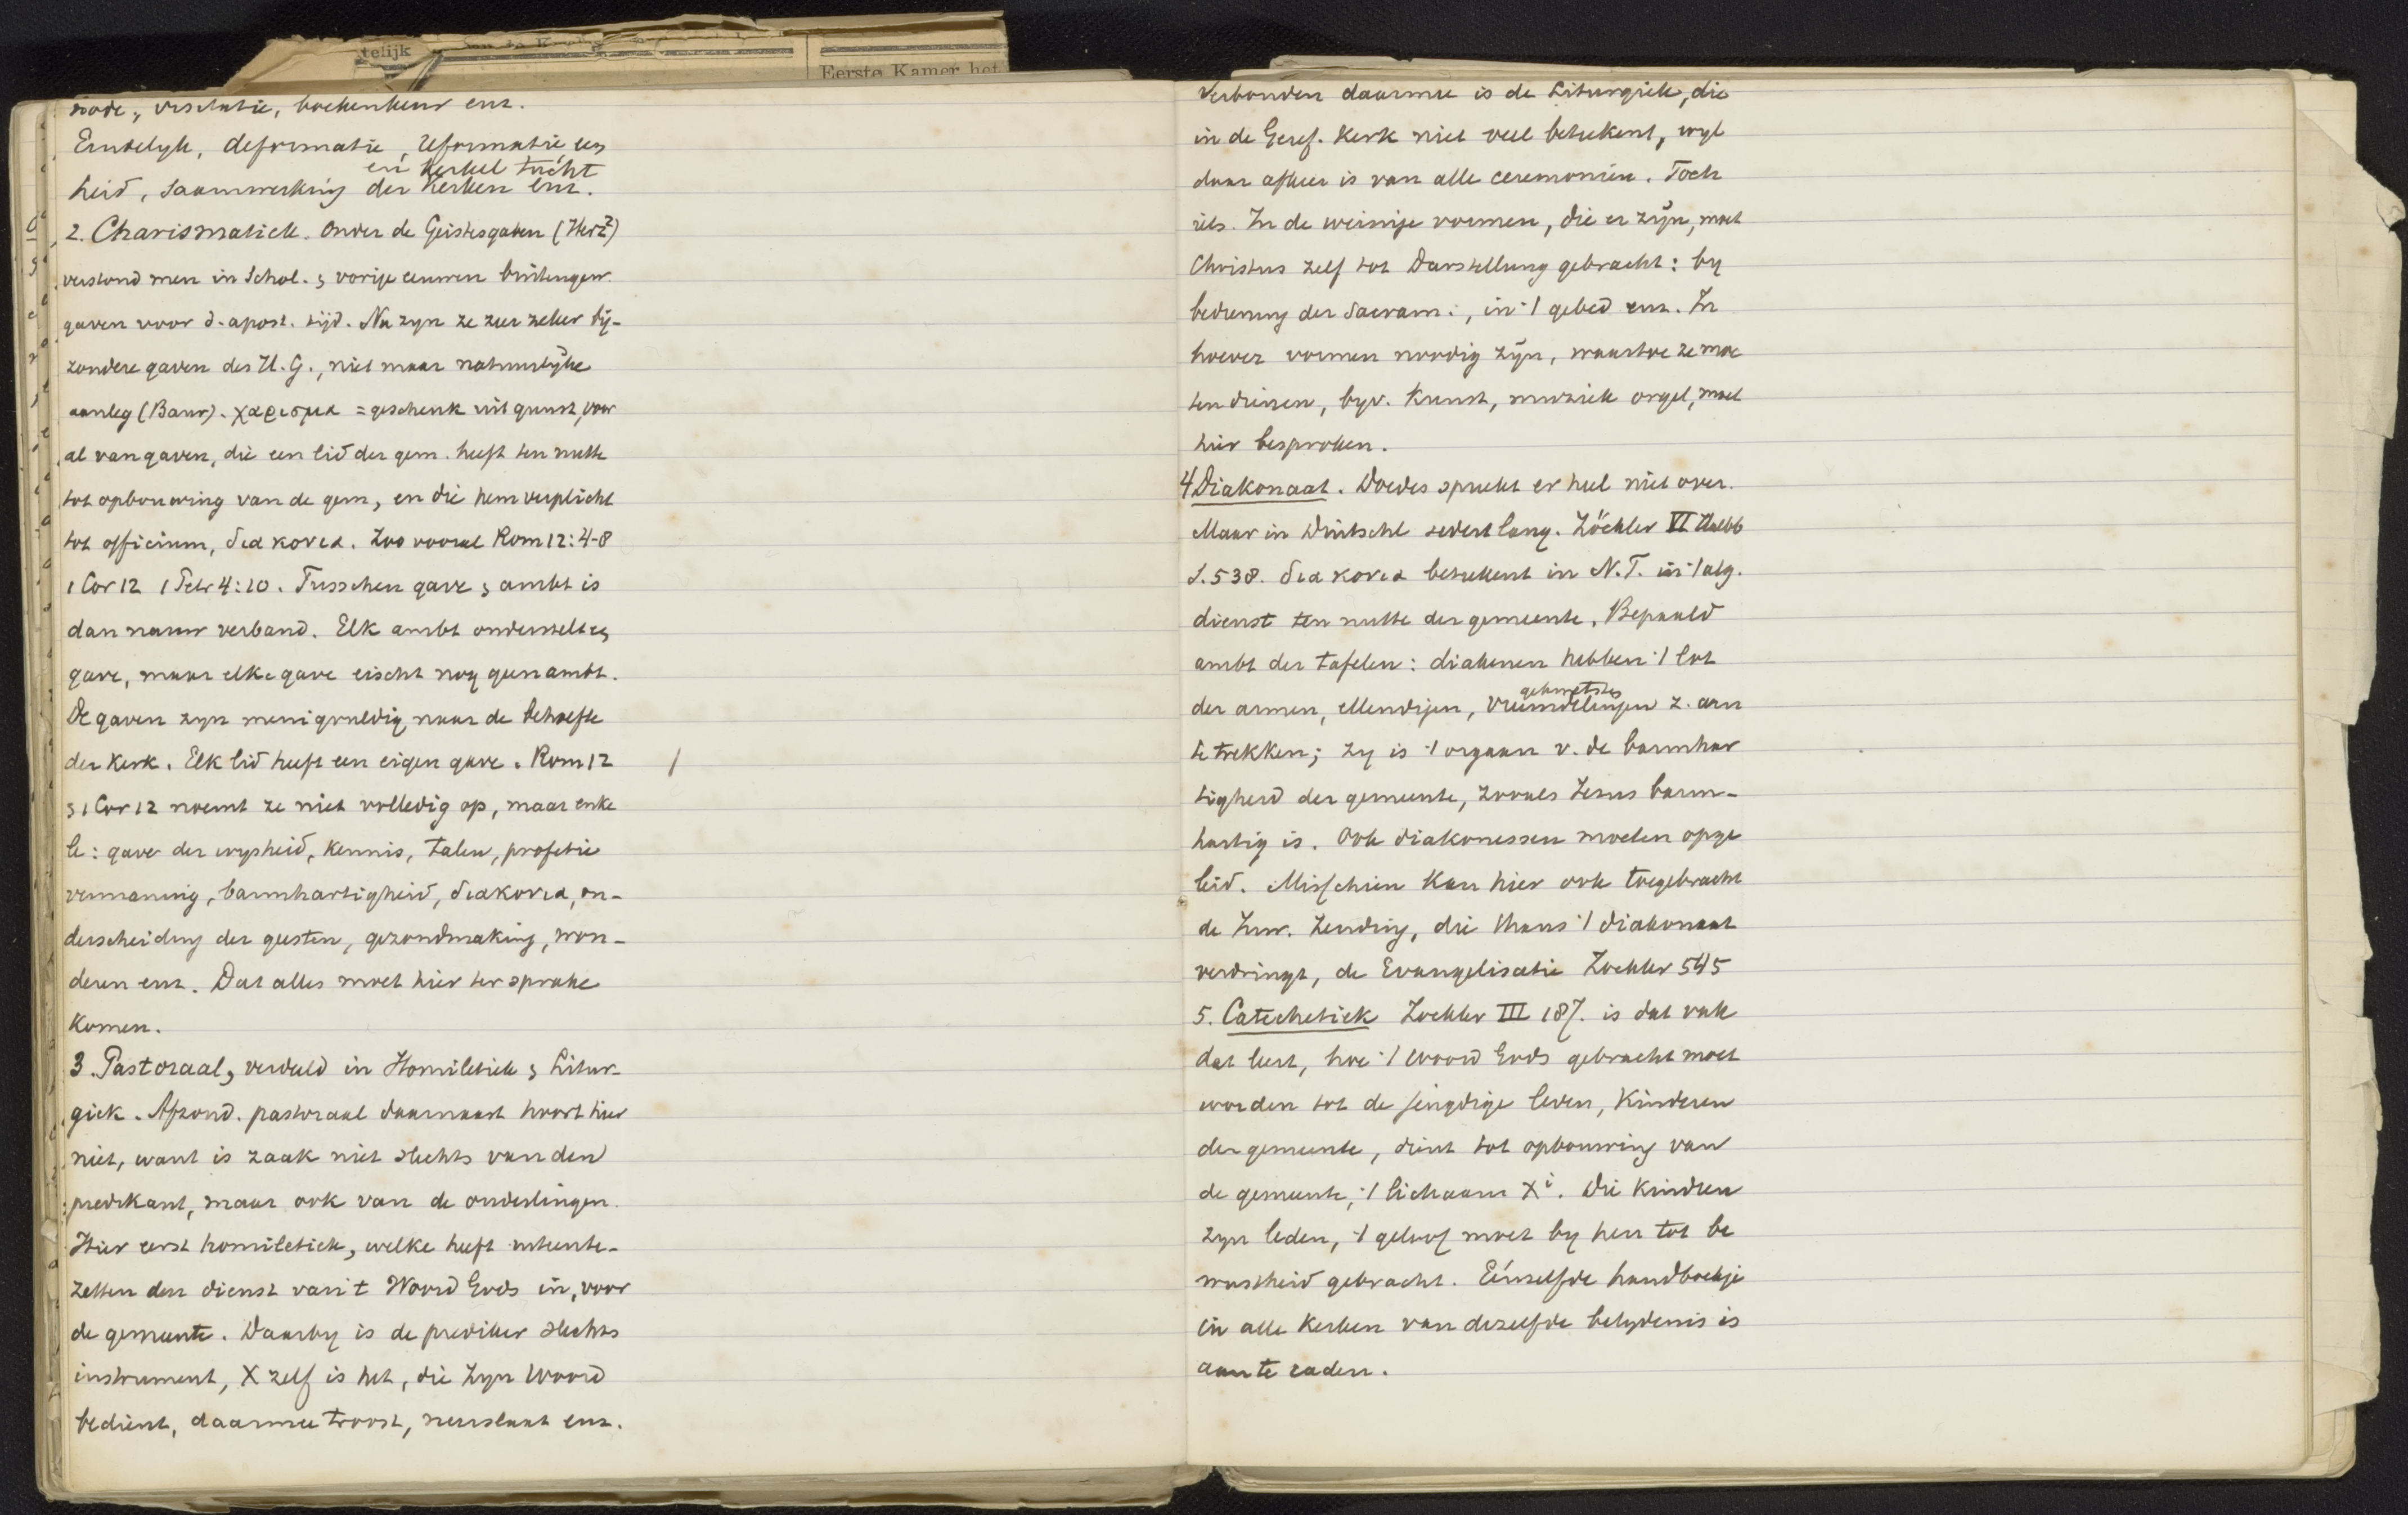 telijk
Eerste Kamer het
node, visitatie, boekenkeur enz.
Eindelyk, deformatie, reformatie een
en kerkel tucht
heid, saamwerking der kerken enz.
2. Charismatiek. Onder de Geistesgaben (Herz²)
verstond men in Schol. & vorige eeuwen buitengew.
gaven voor d. apost. tijd. Nu zyn ze zeer zeker bij-
zondere gaven des H. G., niet maar natuurlijke
aanleg (Baur). χαρισμα = geschenk uit gunst, voor
al van gaven, die een lid der gem. heeft ten nutte
tot opbouwing van de gem, en die hem verplicht
tot officium, διακονια. Zoo vooral Rom 12:4-8
1 Cor 12 1 Petr 4:10. Tusschen gave & ambt is
dan nauw verband. Elk ambt onderstelt een
gave, maar elke gave eischt nog geen ambt.
De gaven zyn menigvuldig naar de behoefte
der kerk. Elk lid heeft een eigen gave. Rom 12
& 1 Cor 12 noemt ze niet volledig op, maar enke
le: gave der wysheid, kennis, talen, profetie
vermaning, barmhartigheid, διακονια, on-
derscheiding der geesten, gezondmaking, won-
deren enz. Dat alles moet hier ter sprake
komen.
3. Pastoraal, verdeeld in Homiletiek & Litur-
giek. Afzond. pastoraal daarnaast hoort hier
niet, want is zaak niet slechts van den
predikant, maar ook van de ouderlingen.
Hier eerst homiletiek, welke heeft uiteente-
zetten den dienst van t Woord Gods in, voor
de gemeente. Daarby is de prediker slechts
instrument, X zelf is het, die Zyn Woord
bedient, daarmee troost, neerslaat enz.
Verbonden daarmee is de Liturgiek, die
in de Geref. Kerk niet veel betekent, wyl
daar afkeer is van alle ceremoniën. Toch
iets. In de weinige vormen, die er zijn, moet
Christus zelf tot Darstellung gebracht: by
bediening der Sacram:, in 't gebed enz. In
hoever vormen noodig zijn, waartoe ze moe
ten dienen, byv. kunst, muziek orgel, moet
hier besproken.
4 Diakonaat. Doedes spreekt er heel niet over.
Maar in Duitschl sedert lang. Zöckler VI Halbb
S. 538. διακονια betekent in N.T. in 't alg.
dienst ten nutte der gemeente. Bepaald
ambt der tafelen: diakenen hebben 't lot
gekwetsten
der armen, ellendigen, vreemdelingen z. aan
te trekken; zy is 't orgaan v. de barmhar
tigheid der gemeente, zooals Jezus barm-
hartig is. Ook diakonessen moeten opge
leid. Misschien kan hier ook toegebracht
de Inw. Zending, die thans 't diakonaat
verdringt, de Evangelisatie Zockler 545
5. Catechetiek Zockler III 187. is dat vak
dat leert, hoe 't Woord Gods gebracht moet
worden tot de jeugdige leden, kinderen
der gemeente, dient tot opbouwing van
de gemeente, 't lichaam Xi. Die kindren
zyn leden, 't geloof moet by hen tot be
wustheid gebracht. Eénzelfde handboekje
in alle kerken van dezelfde belydenis is
aan te raden.